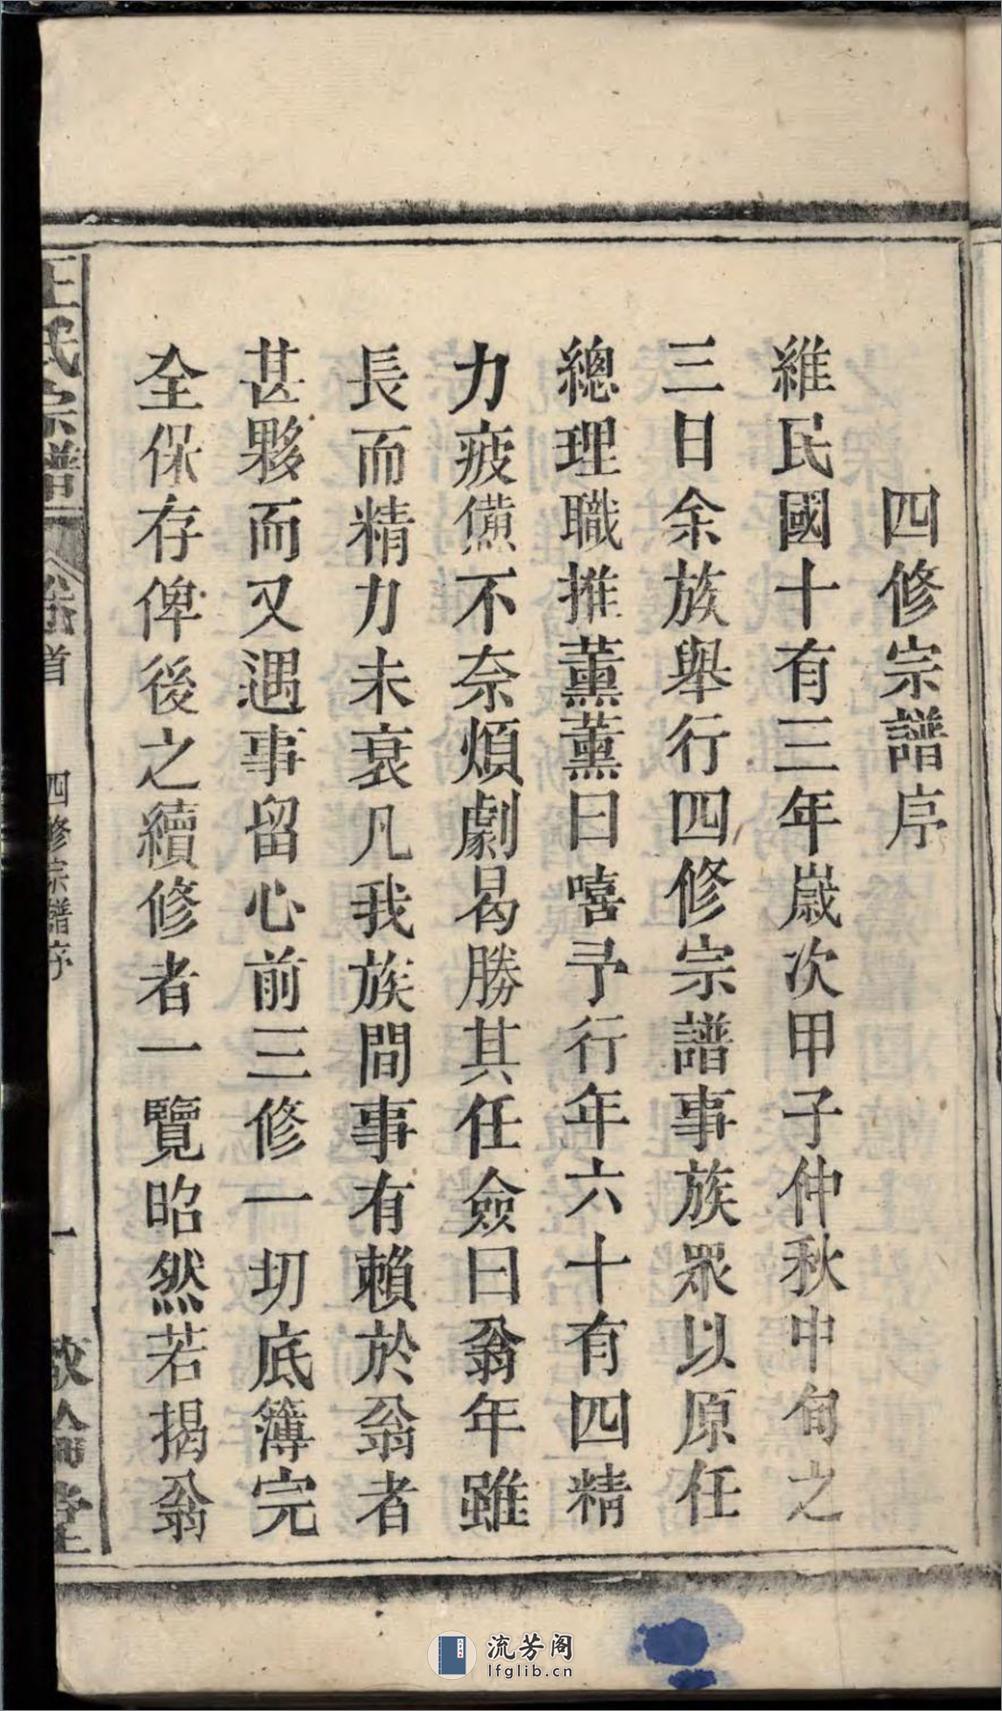 四修宗譜序
維民國十有三年嵗次甲子仲秋中旬之
三日余族舉行四修宗譜事族眾以原任
總理職推薰薰曰嘻予行年六十有四精
力疲憊不奈煩劇曷勝其任僉曰翁年雖
長而精力未衰凡我族間事有賴於翁者
甚夥而又遇事留心前三修一切底簿完
全保存俾後之續修者一覽昭然若揭翁
王氏宗譜
卷首
四修宗譜序
一
堂
流芳阁
lfglib.cn